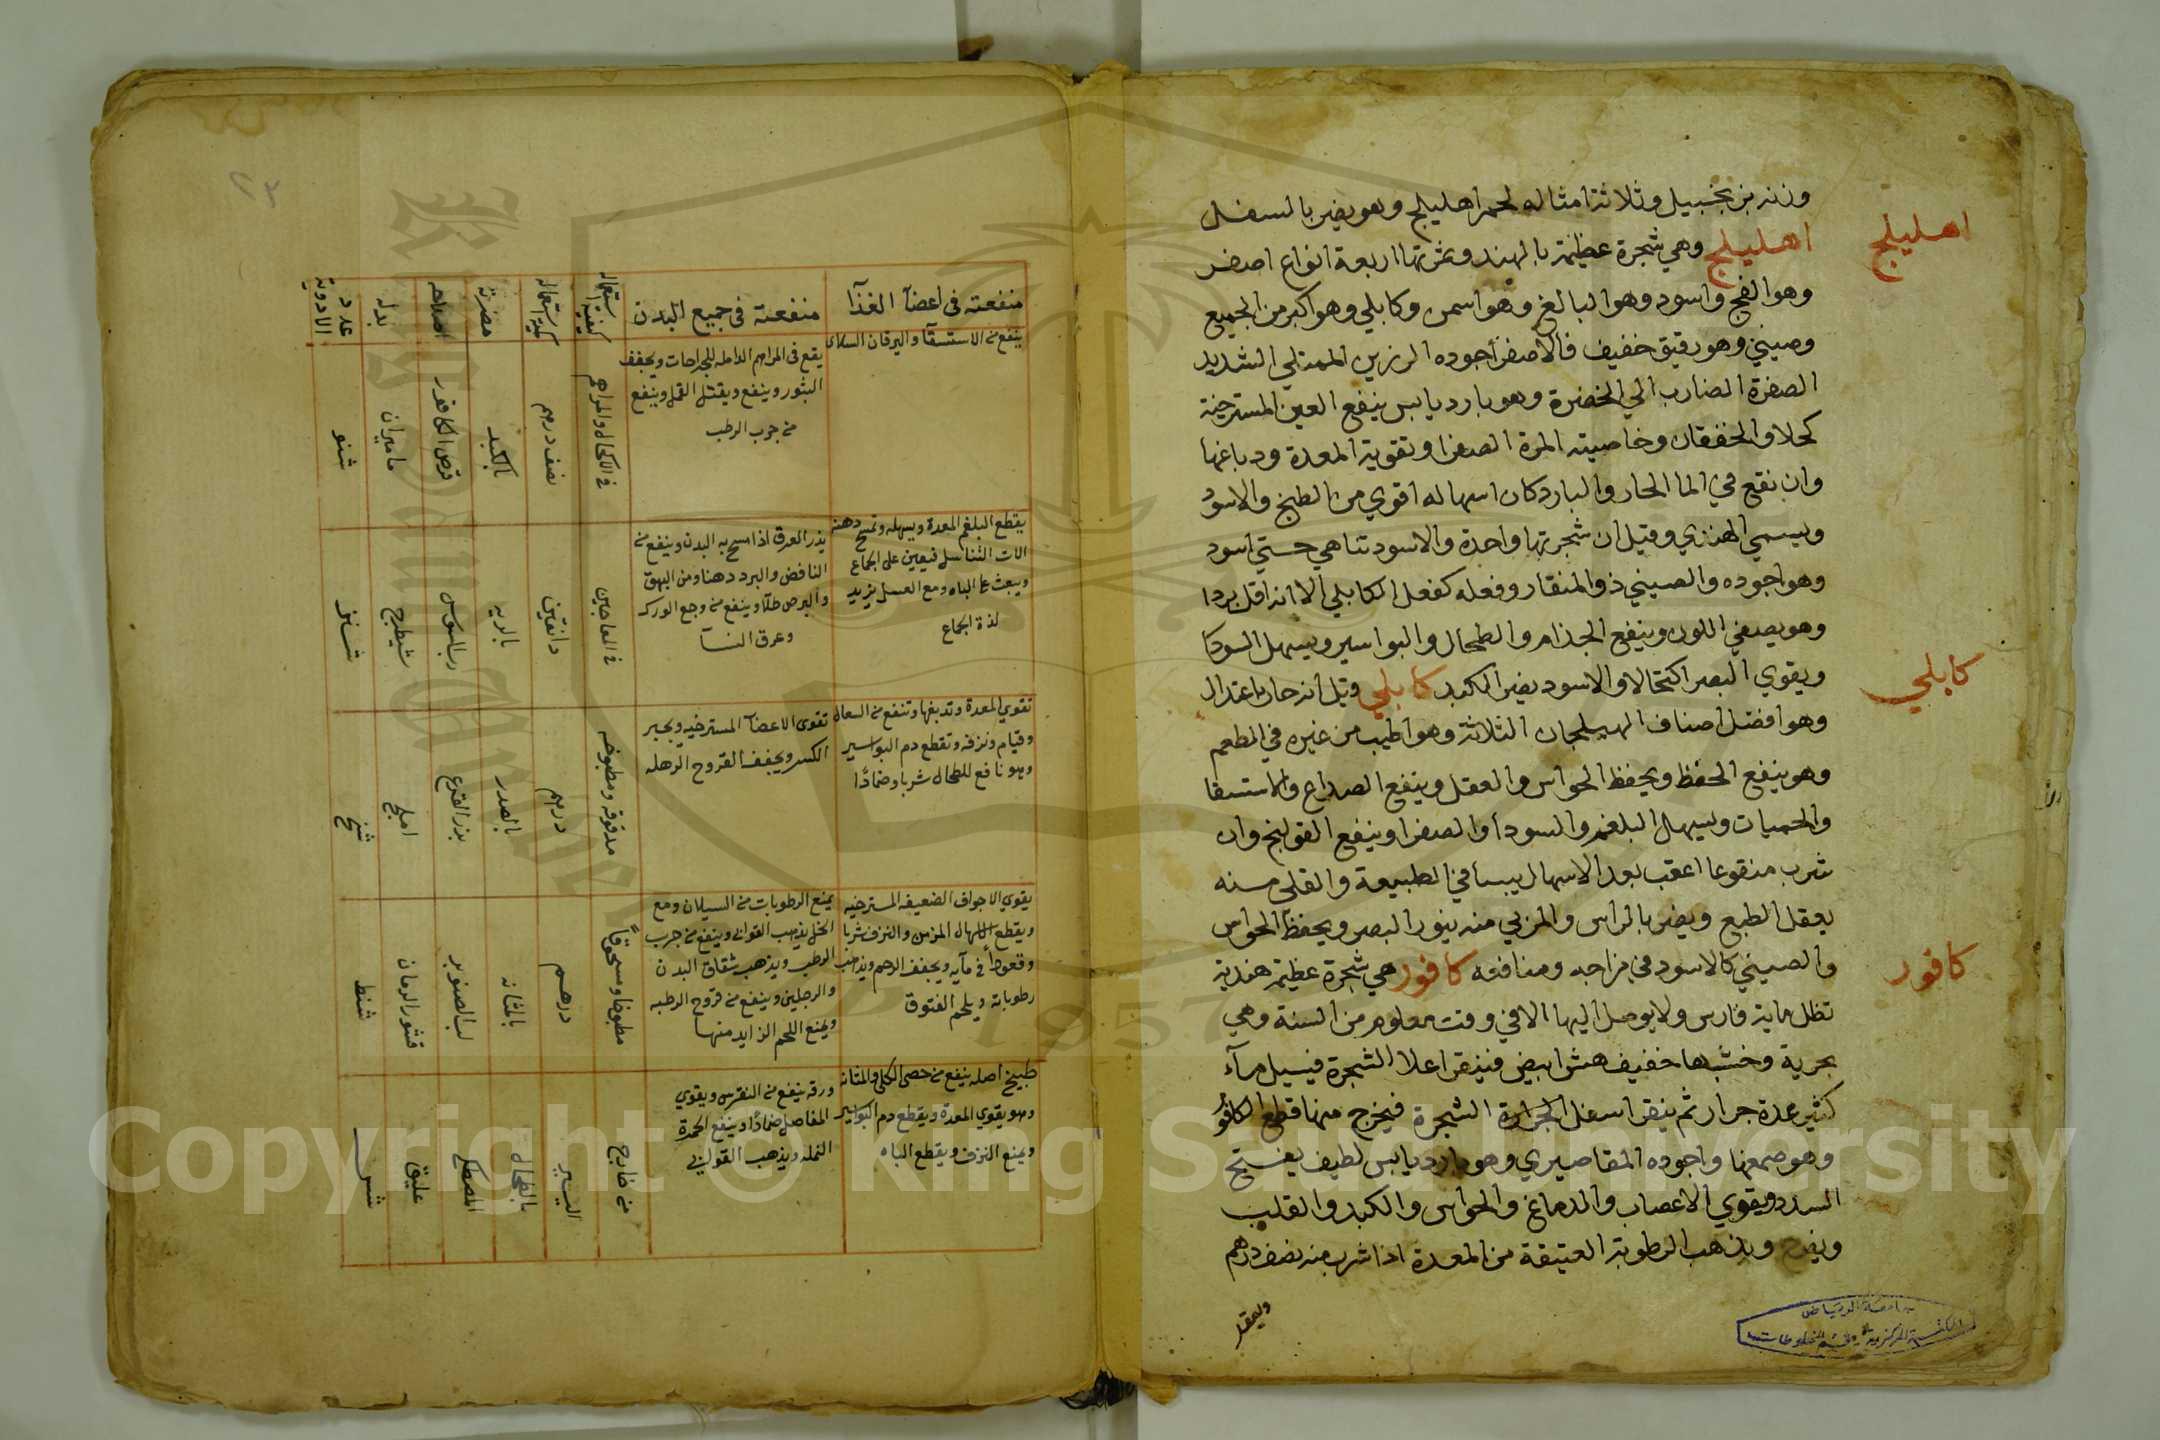 وزنه زنجبيل وثلاثة امثاله لحم اهليلج وهو يضر بالسفل
اهليلج
اهليلج وهي شجرة عظيمة بالهند وثمرتها اربعة انواع اصفر
وهو الفج واسود وهو البالغ وهو اسمن وكابلي وهو اكبر من الجميع
وصيني وهو رقيق خفيف فالاصفر أجوده الرزين الممتلي الشديد
الصفرة الضارب الي الخضرة وهو بارد يابس ينفع العين المسترخية
كحلا والخفقان وخاصيته المرة الصفرا وتقوية المعدة ودباغها
وان نقع في الما الحار والبارد كان اسهاله اقوي من الطبخ والاسود
ويسمي الهندي وقيل ان شجرتها واحدة والاسود تناهي حتي اسود
وهو اجوده والصيني ذو المنقار وفعله كفعل الكابلي الا انه اقل بردا
وهو يصفي اللون وينفع الجذام والطحال والبواسير ويسهل السودا
ويقوي البصر اكتحالا والاسود يضر الكبد كابلي وقيل انه حار باعتدال
كابلي
وهو افضل اصناف الهليلجان الثلاثة وهو اطيب من غيره في المطعم
وهو ينفع الحفظ ويحفظ الحواس والعقل وينفع الصداع والاستسقا
والحميات ويسهل البلغم والسودا والصفرا وينفع القولنج وان
شرب منقوعا اعقب بعد الاسهال يبسا في الطبيعة والقلي منه
يعقل الطبع ويضر بالراس والمربي منه ينور البصر ويحفظ الحواس
والصيني كالاسود في مزاجه ومنافعه كافور هي شجرة عظيمة هندية
كافور
تظل ماية فارس ولا يوصل اليها الا في وقت معلوم من السنة وهي
بحرية وخشبها خفيف هش ابيض فينقر اعلا الشجرة فيسيل مآء
كثير عدة جرار ثم ينقر اسفل الشجرة فيخرج منها قطع الكافور
وهو صمغها واجوده القاصيري وهو بارد يابس لطيف يفتح
السدد ويقوي الاعصاب والدماغ والحواس والكبد والقلب
ويفرح ويذهب الرطوبة العتيقة من المعدة اذا شرب منه نصف درهم
جامعة الرياض
المكتبة المركزية قسم المخطوطات
٢٣
منفعته في اعضآ الغذآ
منفعته في جميع البدن
كيفية استعماله
كمية استعماله
مضرته
اصلاحه
بدله
عدد الادوية
ينفع من الاستسقآ واليرقان
يقع في المراهم الدامله للجراحات ويجفف
البثور وينفع ويقتل القمل وينفع
من جرب الرطب
في الاكحال والمراهم
نصف درهم
بالكبد
قرص الكافور
ماميران
شنو
يقطع البلغم المعدة ويسهله وتمسح دهنه
الات التناسل فيعين علي الجماع
ويبعث علي الباه ومع العسل يزيد
لذة الجماع
يذر العرق اذا مسح به البدن وينفع من
النافض والبرد دهنا ومن البهق
والبرص طلآ وينفع من وجع الورك
وعرق النسآ
في المعاجين
دانقين
بالريه
رب السوس
شيطرج
تقوي المعدة وتدبغها وتنفع من السعال
وقيام ونزفه وتقطع دم البواسير
وهو نافع للطحال شربا وضمادًا
تقوي الاعضآ المسترخيه ويجبر
الكسر ويجفف القروح الرهله
مدقوقه ومطبوخه
درهم
بالصدر
بزر القرع
املج
شنح
يقوي الاجواف الضعيفه المسترخيه
ويقطع الاسهال المزمن والنزف شربا
وقعودًا في مآيه ويجفف الرحم ويذهب
رطوباته ويلحم الفتوق
يمنع الرطوبات من السيلان ومع
الخل يذهب القوابي وينفع من جرب
الرطب ويذهب شقاق البدن
والرجلين وينفع من قروح الرطبه
ويمنع اللحم الزايد منها
مطبوخا ومسحوقاً
درهم
بالمثانه
لب الصنوبر
قشور الرمان
شنط
طبيخ اصله ينفع من حصي الكلي والمثانه
وهو يقوي المعدة ويقطع دم البواسير
ويمنع النزف ويقطع الباه
ورقه ينفع من النقرس ويقوي
المفاصل ضمادًا وينفع الحمرة
النمله ويذهب القوابي
من خارج
اليسير
بالطحال
المصطكي
عليق
Copyright © King Saud University
1957